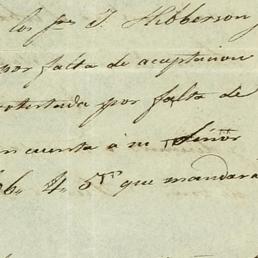 los Sres J. Hibberson
por falta de aceptacion
rotestada por falta de
n cuenta á su Señor
6„ 4„ 5 que mandará